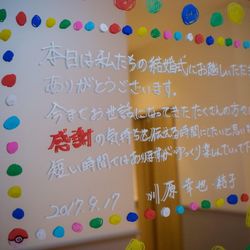 本日は私たちの結婚式にお越しいただき
ありがとうございます。
今までお世話になってきたたくさんの方々に
感謝の気持ちを伝える時間にしたいと思い
短い時間ではありますがゆっくり楽しんでいって
2017.9.17 川原 幸也・結子